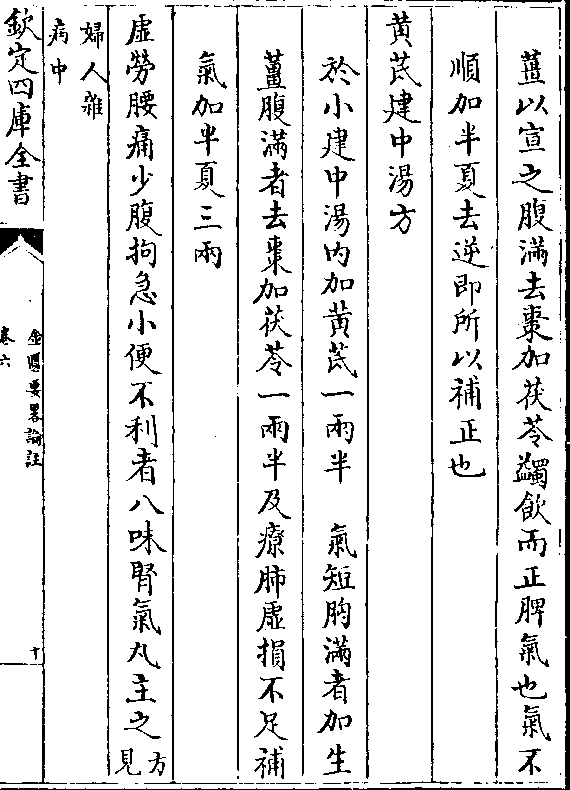 薑以宣之腹滿去棗加茯苓蠲飲而正脾氣也氣不
順加半夏去逆即所以補正也
黄芪建中湯方
於小建中湯内加黄芪一兩半　氣短胸滿者加生
薑腹滿者去棗加茯苓一兩半及療肺虚損不足補
氣加半夏三兩
虚勞腰痛少腹拘急小便不利者八味腎氣丸主之方見
婦人雜
病中
欽定四庫全書
金匱要畧論註
卷六
十